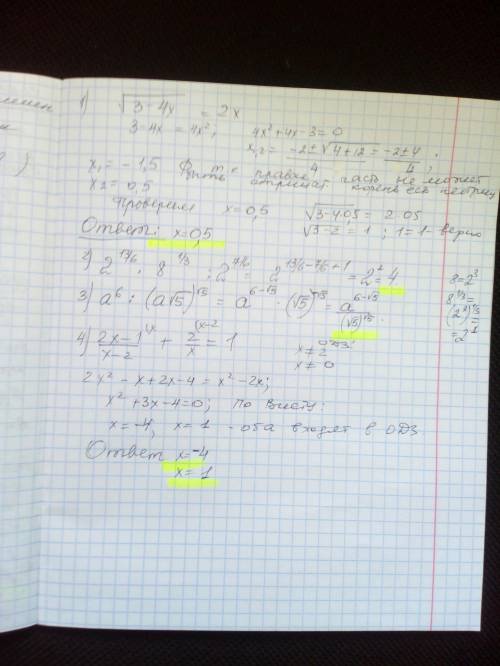 1) √(3-4x) = 2x
3-4x = 4x²; 4x²+4x-3=0
x₁,₂ = (-2±√(4+12))/4 = (-2±4)/4;
x₁ = -1,5 т.к правая часть не может
x2 = 0,5 быть отрицат
Проверим x=0,5 √(3-4·0,5) = 2·0,5
√(3-2) = 1; 1=1 верно
Ответ: x=0,5
2) 2^(13/6) · 8^(1/3) : 2^(7/6) = 2^(13/6-7/6+1) = 2² = 4
8=2³
8^(1/3) =
(2³)^(1/3) =
=2¹
3) a⁶ : (a√5)^√5 = a^(6-√5) : (√5)^√5 = a^(6-√5)/(√5)^√5
4) (2x-1)/(x-2) \x + 2/x \x-2 = 1
ОДЗ:
x≠2
x≠0
2x² - x + 2x - 4 = x² - 2x;
x² + 3x - 4 = 0; по Виету:
x = -4, x = 1 - оба входят в ОДЗ
Ответ x=-4
x=1